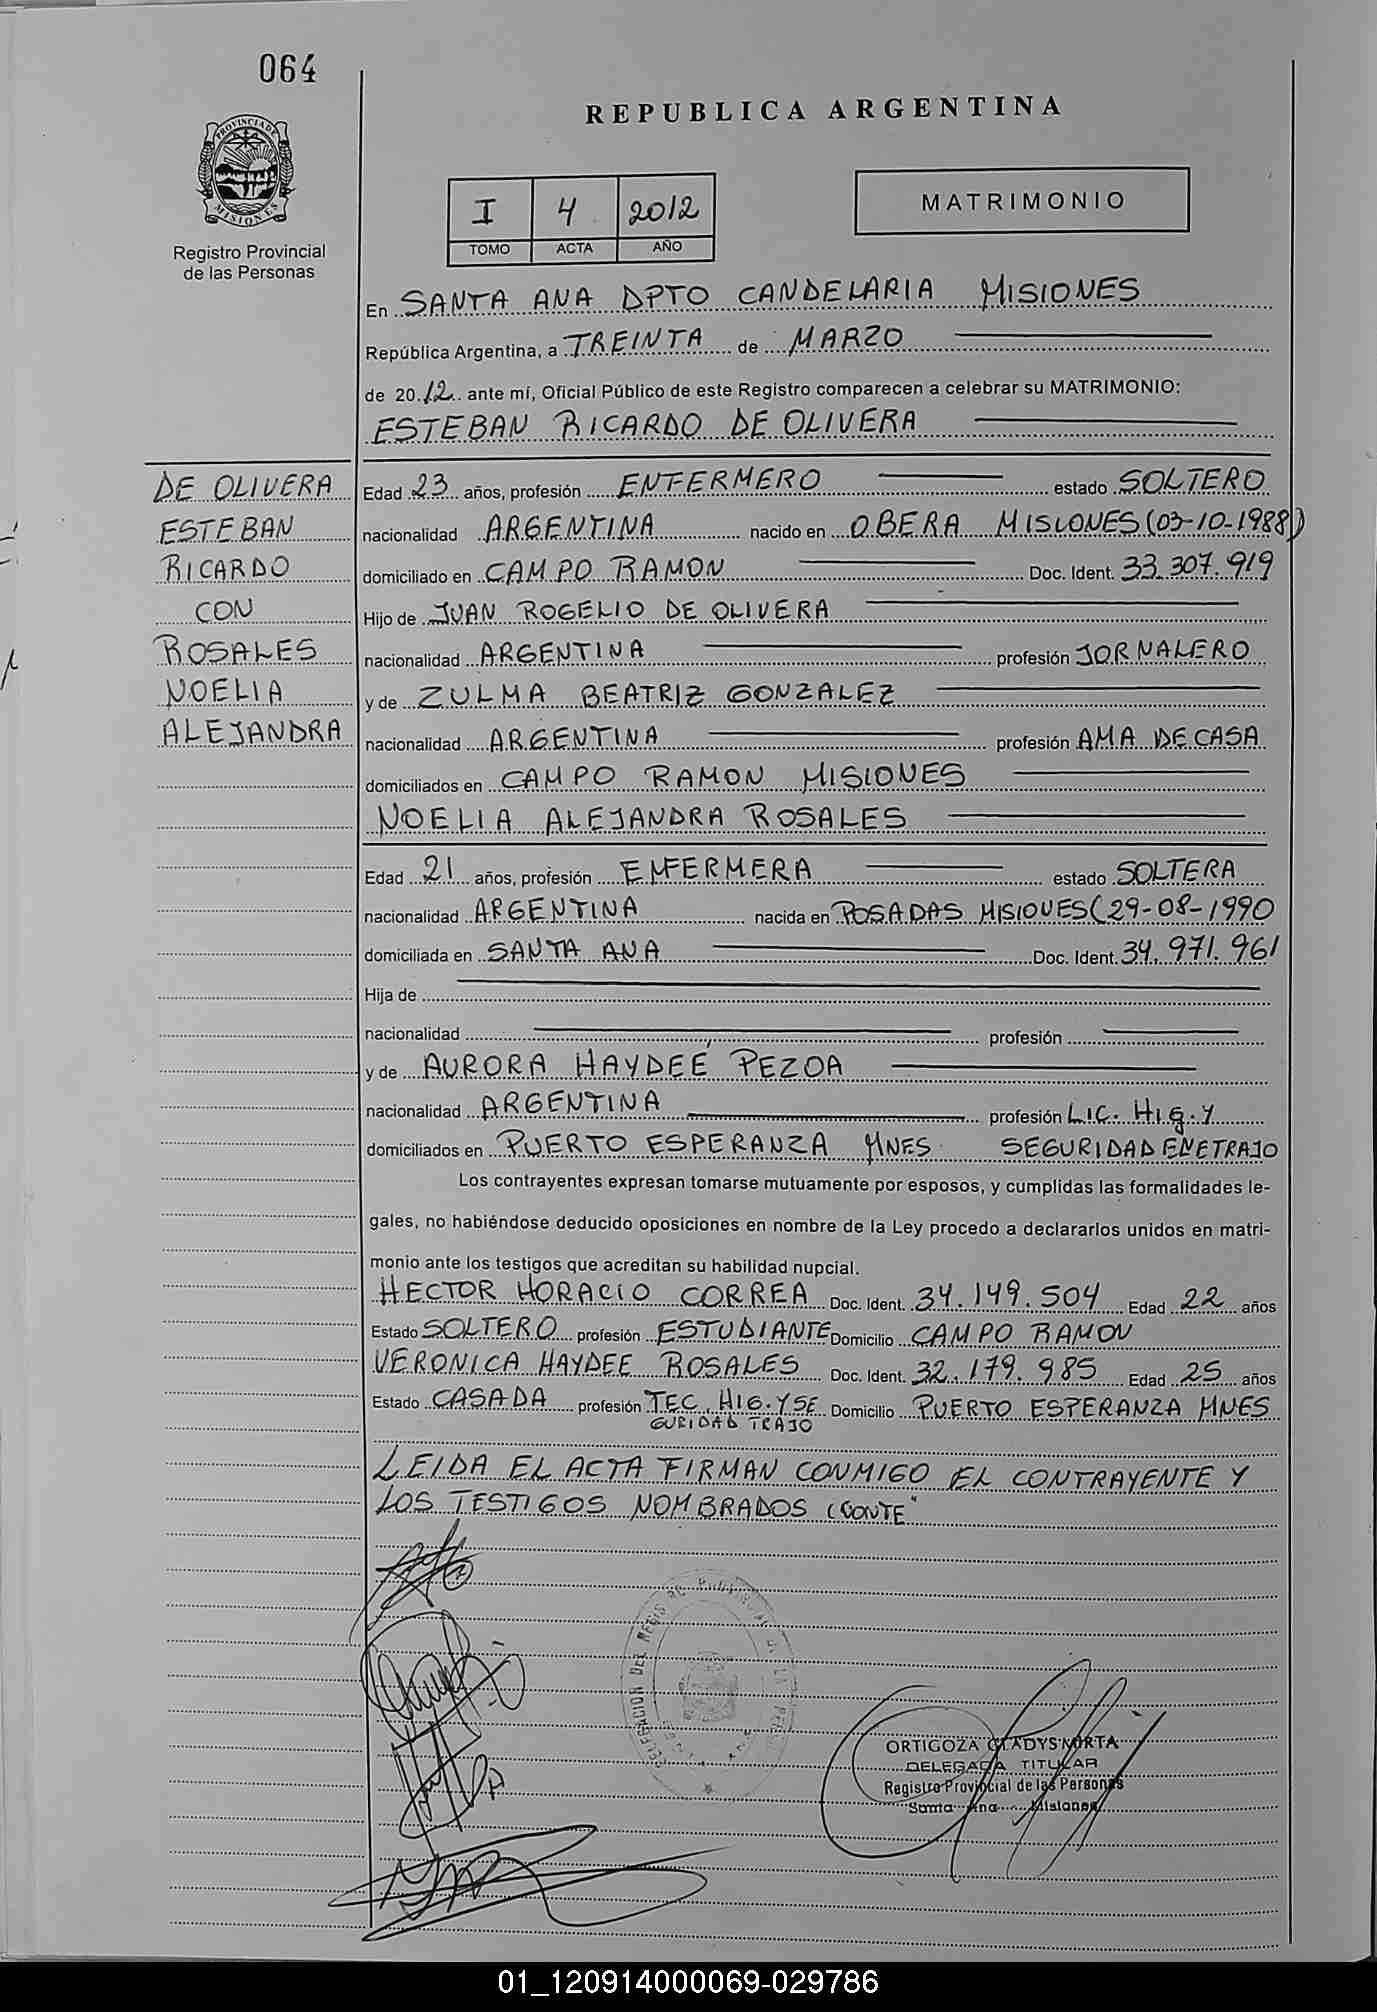 064
REPUBLICA ARGENTINA
PROVINCIA DE
MISIONES
Registro Provincial
de las Personas
I 4 2012
TOMO ACTA AÑO
MATRIMONIO
En SANTA ANA DPTO CANDELARIA MISIONES
República Argentina, a TREINTA de MARZO
de 2012 ante mí, Oficial Público de este Registro comparecen a celebrar su MATRIMONIO:
ESTEBAN RICARDO DE OLIVERA
DE OLIVERA
ESTEBAN
RICARDO
CON
ROSALES
NOELIA
ALEJANDRA
Edad 23 años, profesión ENFERMERO estado SOLTERO
nacionalidad ARGENTINA nacido en OBERA MISIONES (03-10-1988)
domiciliado en CAMPO RAMON Doc. Ident. 33.307.919
Hijo de JUAN ROGELIO DE OLIVERA
nacionalidad ARGENTINA profesión JORNALERO
y de ZULMA BEATRIZ GONZALEZ
nacionalidad ARGENTINA profesión AMA DE CASA
domiciliados en CAMPO RAMON MISIONES
NOELIA ALEJANDRA ROSALES
Edad 21 años, profesión ENFERMERA estado SOLTERA
nacionalidad ARGENTINA nacida en POSADAS MISIONES (29-08-1990
domiciliada en SANTA ANA Doc. Ident. 34.971.961
Hija de
nacionalidad profesión
y de AURORA HAYDEÉ PEZOA
nacionalidad ARGENTINA profesión LIC. HIG. Y
domiciliados en PUERTO ESPERANZA MNES SEGURIDAD EN ETRAJO
Los contrayentes expresan tomarse mutuamente por esposos, y cumplidas las formalidades le-
gales, no habiéndose deducido oposiciones en nombre de la Ley procedo a declararlos unidos en matri-
monio ante los testigos que acreditan su habilidad nupcial.
HECTOR HORACIO CORREA Doc. Ident. 34.149.504 Edad 22 años
Estado SOLTERO profesión ESTUDIANTE Domicilio CAMPO RAMON
VERONICA HAYDEE ROSALES Doc. Ident. 32.179.985 Edad 25 años
Estado CASADA profesión TEC. HIG. Y SE Domicilio PUERTO ESPERANZA MNES
GURIDAD TRAJO
LEIDA EL ACTA FIRMAN CONMIGO EL CONTRAYENTE Y
LOS TESTIGOS NOMBRADOS CONTE"
ORTIGOZA GLADYS MIRTA
DELEGADA TITULAR
Registro Provincial de las Personas
Santa Ana Misiones
01_120914000069-029786